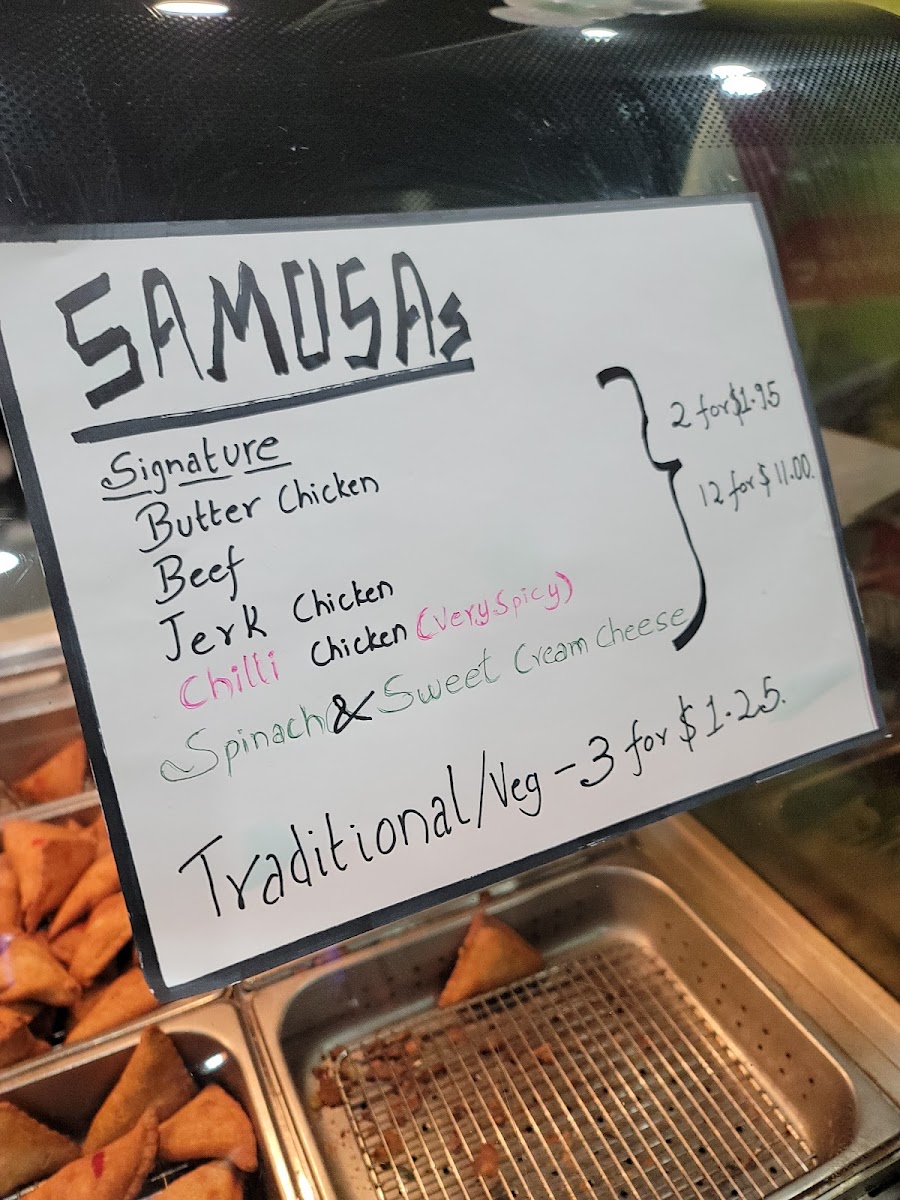 SAMOSAs
Signature
Butter Chicken
Beef
Jerk Chicken
Chilli Chicken (Very Spicy)
Spinach & Sweet Cream Cheese
2 for $1.95
12 for $11.00.
Traditional/Veg - 3 for $1.25.